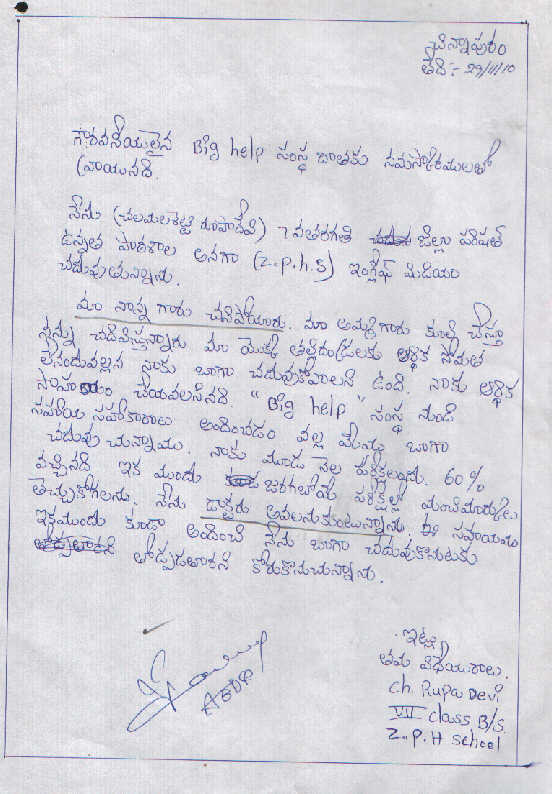 చిన్నాపురం
తేది:- 29/11/10
గౌరవనీయులైన Big help సంస్థ వారికి నమస్కారములతో
వ్రాయునది.
నేను (చలమలశెట్టి రూపాదేవి) 7వతరగతి జిల్లా పరిషత్
ఉన్నత పాఠశాల అనగా (Z.p.h.s) ఇంగ్లీష్ మీడియం
చదువుతున్నాను.
మా నాన్న గారు చనిపోయారు. మా అమ్మగారు కూలి చేస్తూ
నన్ను చదివిస్తున్నారు మా యొక్క తల్లిదండ్రులకు ఆర్థిక స్తోమత
లేనందువల్లన నాకు బాగా చదువుకోవాలని ఉంది. నాకు ఆర్థిక
సాహాయం చేయవలసినది "Big help" సంస్థ నుండి
సహాయ సహకారాలు అందించడం వల్ల మేము బాగా
చదువు చున్నాము. నాకు మూడు నెల పరీక్షలందు. 60%
వచ్చినది ఇక ముందు జరగబోయే పరీక్షల్లో మంచిమార్కులు
తెచ్చుకోగలను. నేను డాక్టరు అవలనుకుంటున్నాను ఈ సహాయం
ఇకముందు కూడా అందించి నేను బాగా చదువుకొనుటకు
తోడ్పడతారని కోరుకొనుచున్నాను.
ఇట్లు
తమ విధేయురాలు.
Ch. Rupa Devi
VII class B/s.
Z.P.H school